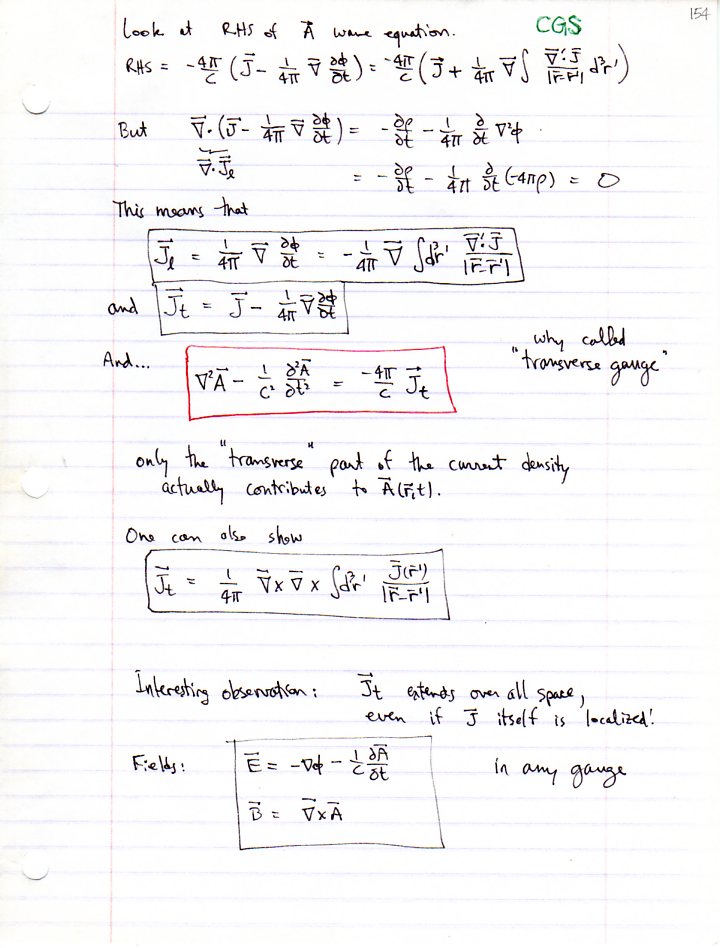 154
CGS
Look at RHS of A⃗ wave equation.
RHS = -4π/c (J⃗ - 1/4π ∇⃗ ∂ϕ/∂t) = -4π/c (J⃗ + 1/4π ∇⃗ ∫ ∇⃗'·J⃗/|r⃗-r⃗'| d³r')
But ∇⃗·(J⃗ - 1/4π ∇⃗ ∂ϕ/∂t) = -∂ρ/∂t - 1/4π ∂/∂t ∇²ϕ
∇⃗·J⃗ℓ = -∂ρ/∂t - 1/4π ∂/∂t (-4πρ) = 0
This means that
J⃗ℓ = 1/4π ∇⃗ ∂ϕ/∂t = -1/4π ∇⃗ ∫d³r' ∇⃗'·J⃗/|r⃗-r⃗'|
and J⃗t = J⃗ - 1/4π ∇⃗ ∂ϕ/∂t
And... ∇²A⃗ - 1/c² ∂²A⃗/∂t² = -4π/c J⃗t
why called
"transverse gauge"
only the "transverse" part of the current density
actually contributes to A⃗(r⃗,t).
One can also show
J⃗t = 1/4π ∇⃗×∇⃗× ∫d³r' J⃗(r⃗')/|r⃗-r⃗'|
Interesting observation: J⃗t extends over all space,
even if J⃗ itself is localized!
Fields: E⃗ = -∇ϕ - 1/c ∂A⃗/∂t in any gauge
B⃗ = ∇⃗×A⃗